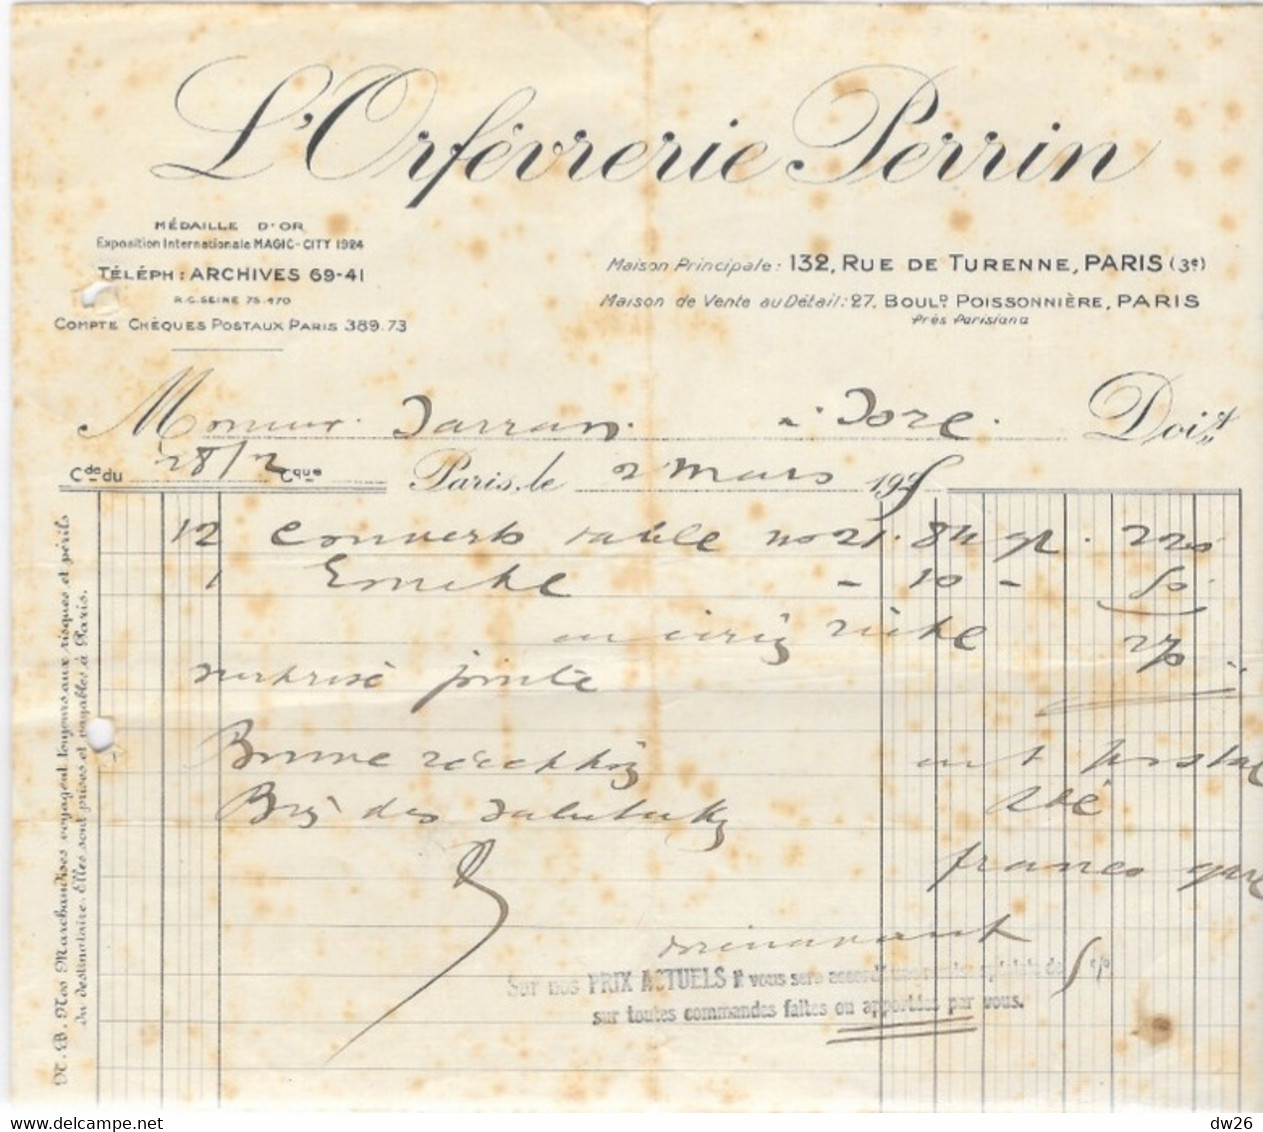 L'Orfèvrerie Perrin
MÉDAILLE D'OR
Exposition Internationale MAGIC-CITY 1924
TÉLÉPH: ARCHIVES 69-41
R.C. SEINE 75.470
COMPTE CHÈQUES POSTAUX PARIS 389.73
Maison Principale: 132, RUE DE TURENNE, PARIS (3e)
Maison de Vente au Détail: 27, BOULD POISSONNIÈRE, PARIS
Près Parisiana
Monsieur à Doit
Cde du 28/2 Cque Paris, le 2 mars 192
12 couverts table no 21. 84 gr. 220
1 - 10 - 50
270
surprise jointe
Bonne réception
Bien des salutations
franco gare
dorénavant
Sur nos PRIX ACTUELS il vous sera accordé une remise spéciale de 5 %
sur toutes commandes faites ou apportées par vous.
N.B. Nos Marchandises voyagent toujours aux risques et périls
du destinataire. Elles sont prises et payables à Paris.
www.delcampe.net
dw26